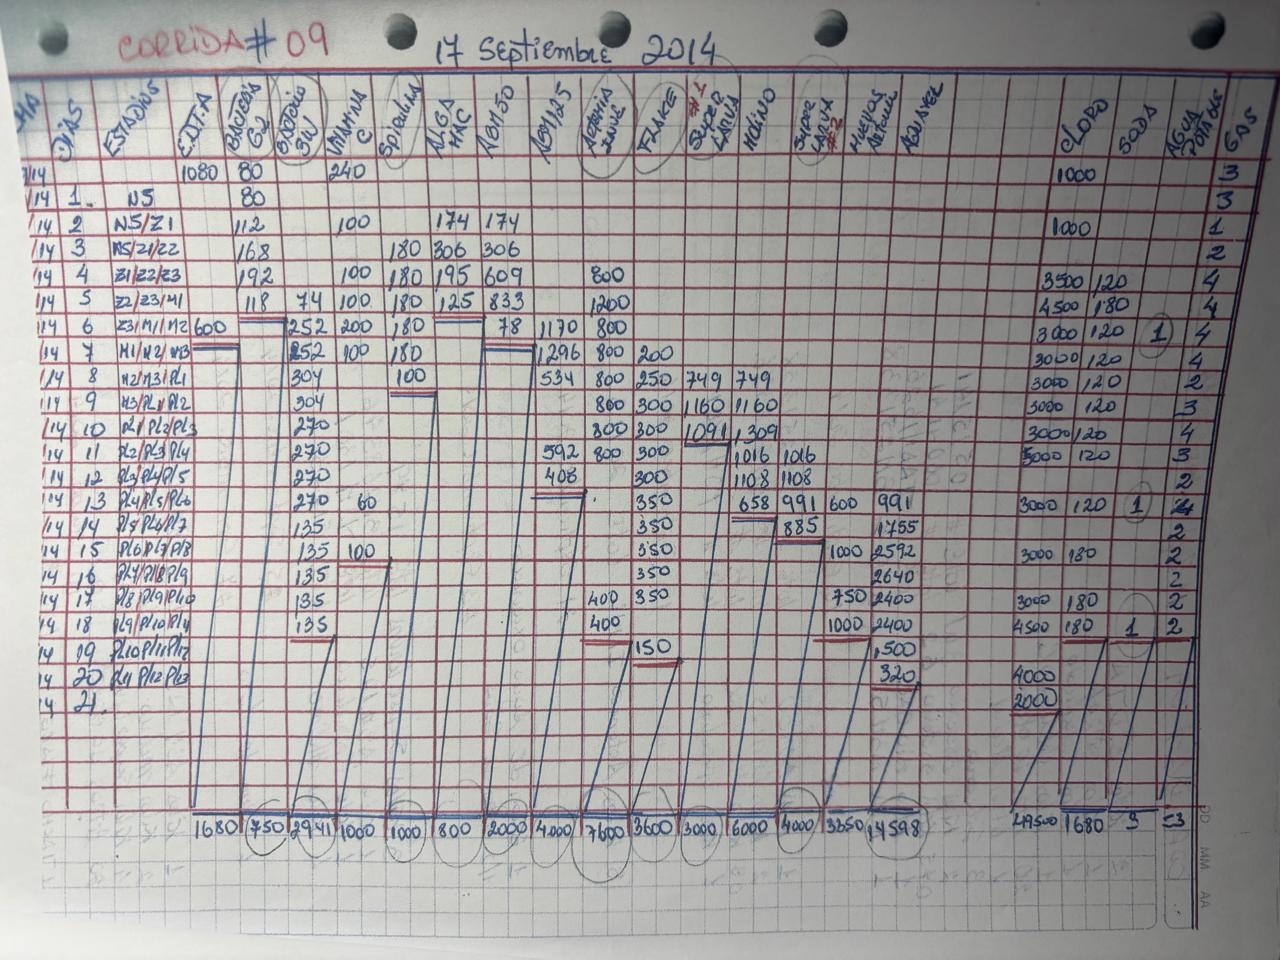 CORRIDA # 09 17 Septiembre 2014
DIAS ESTADIOS E.D.T.A VITAMINA C Spirulina ALGA MAC AGM 50 AGM 125 ARTEMIA FLAKE SUPER LARVA #1 MOLINO SUPER LARVA #2 HUEVOS CLORO SODA AGUA GAS
/14 1080 80 240 1000 3
/14 1. N5 80 3
/14 2 N5/Z1 112 100 174 174 1000 1
/14 3 N5/Z1/Z2 168 180 306 306 2
/14 4 Z1/Z2/Z3 192 100 180 195 609 800 3500 120 4
/14 5 Z2/Z3/M1 118 74 100 180 125 833 1200 4500 180 4
/14 6 Z3/M1/M2 600 252 200 180 78 1170 800 3000 120 1 4
/14 7 M1/M2/M3 252 100 180 1296 800 200 3000 120 4
/14 8 M2/M3/PL1 304 100 534 800 250 749 749 3000 120 2
/14 9 M3/PL1/PL2 304 800 300 1160 1160 3000 120 3
/14 10 PL1/PL2/PL3 270 800 300 1091 1309 3000 120 4
/14 11 PL2/PL3/PL4 270 592 800 300 1016 1016 3000 120 3
/14 12 PL3/PL4/PL5 270 408 300 1108 1108 2
/14 13 PL4/PL5/PL6 270 60 350 658 991 600 991 3000 120 1
/14 14 PL5/PL6/PL7 135 350 885 1755 2
/14 15 PL6/PL7/PL8 135 100 350 1000 2592 3000 180 2
/14 16 PL7/PL8/PL9 135 350 2640 2
/14 17 PL8/PL9/PL10 135 400 350 750 2400 3000 180 2
/14 18 PL9/PL10/PL11 135 400 1000 2400 4500 180 1 2
/14 19 PL10/PL11/PL12 150 1500
/14 20 PL11 PL12 PL13 320 4000
14 21. 2000
1680 750 2941 1000 1000 800 2000 4000 7600 3600 3000 6000 4000 3350 14598 49500 1680 3 53
DD MM AA